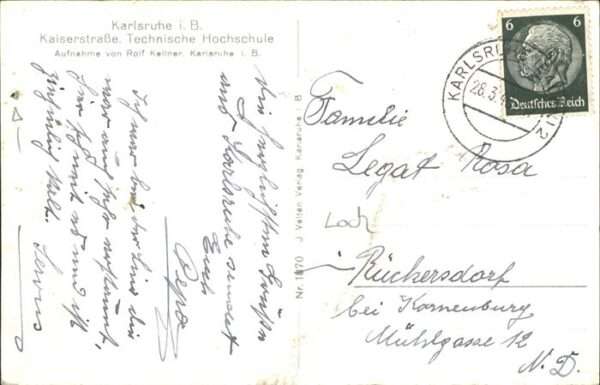 Karlsruhe i. B.
Kaiserstraße. Technische Hochschule
Aufnahme von Rolf Kellner, Karlsruhe i. B.
Die herzlichsten Grüße
aus Karlsruhe sendet
Euch
Pepo
Ich war bei der
war auch sehr
Hier schneit es und ist
kalt. Servus
Nr. 1870 J. Velten Verlag Karlsruhe i. B.
6 6
Deutsches Reich
KARLSRU
28.3.4
Familie
Legat Rosa
Loch
Rückersdorf
bei Korneuburg
Mühlgasse 12
N. D.